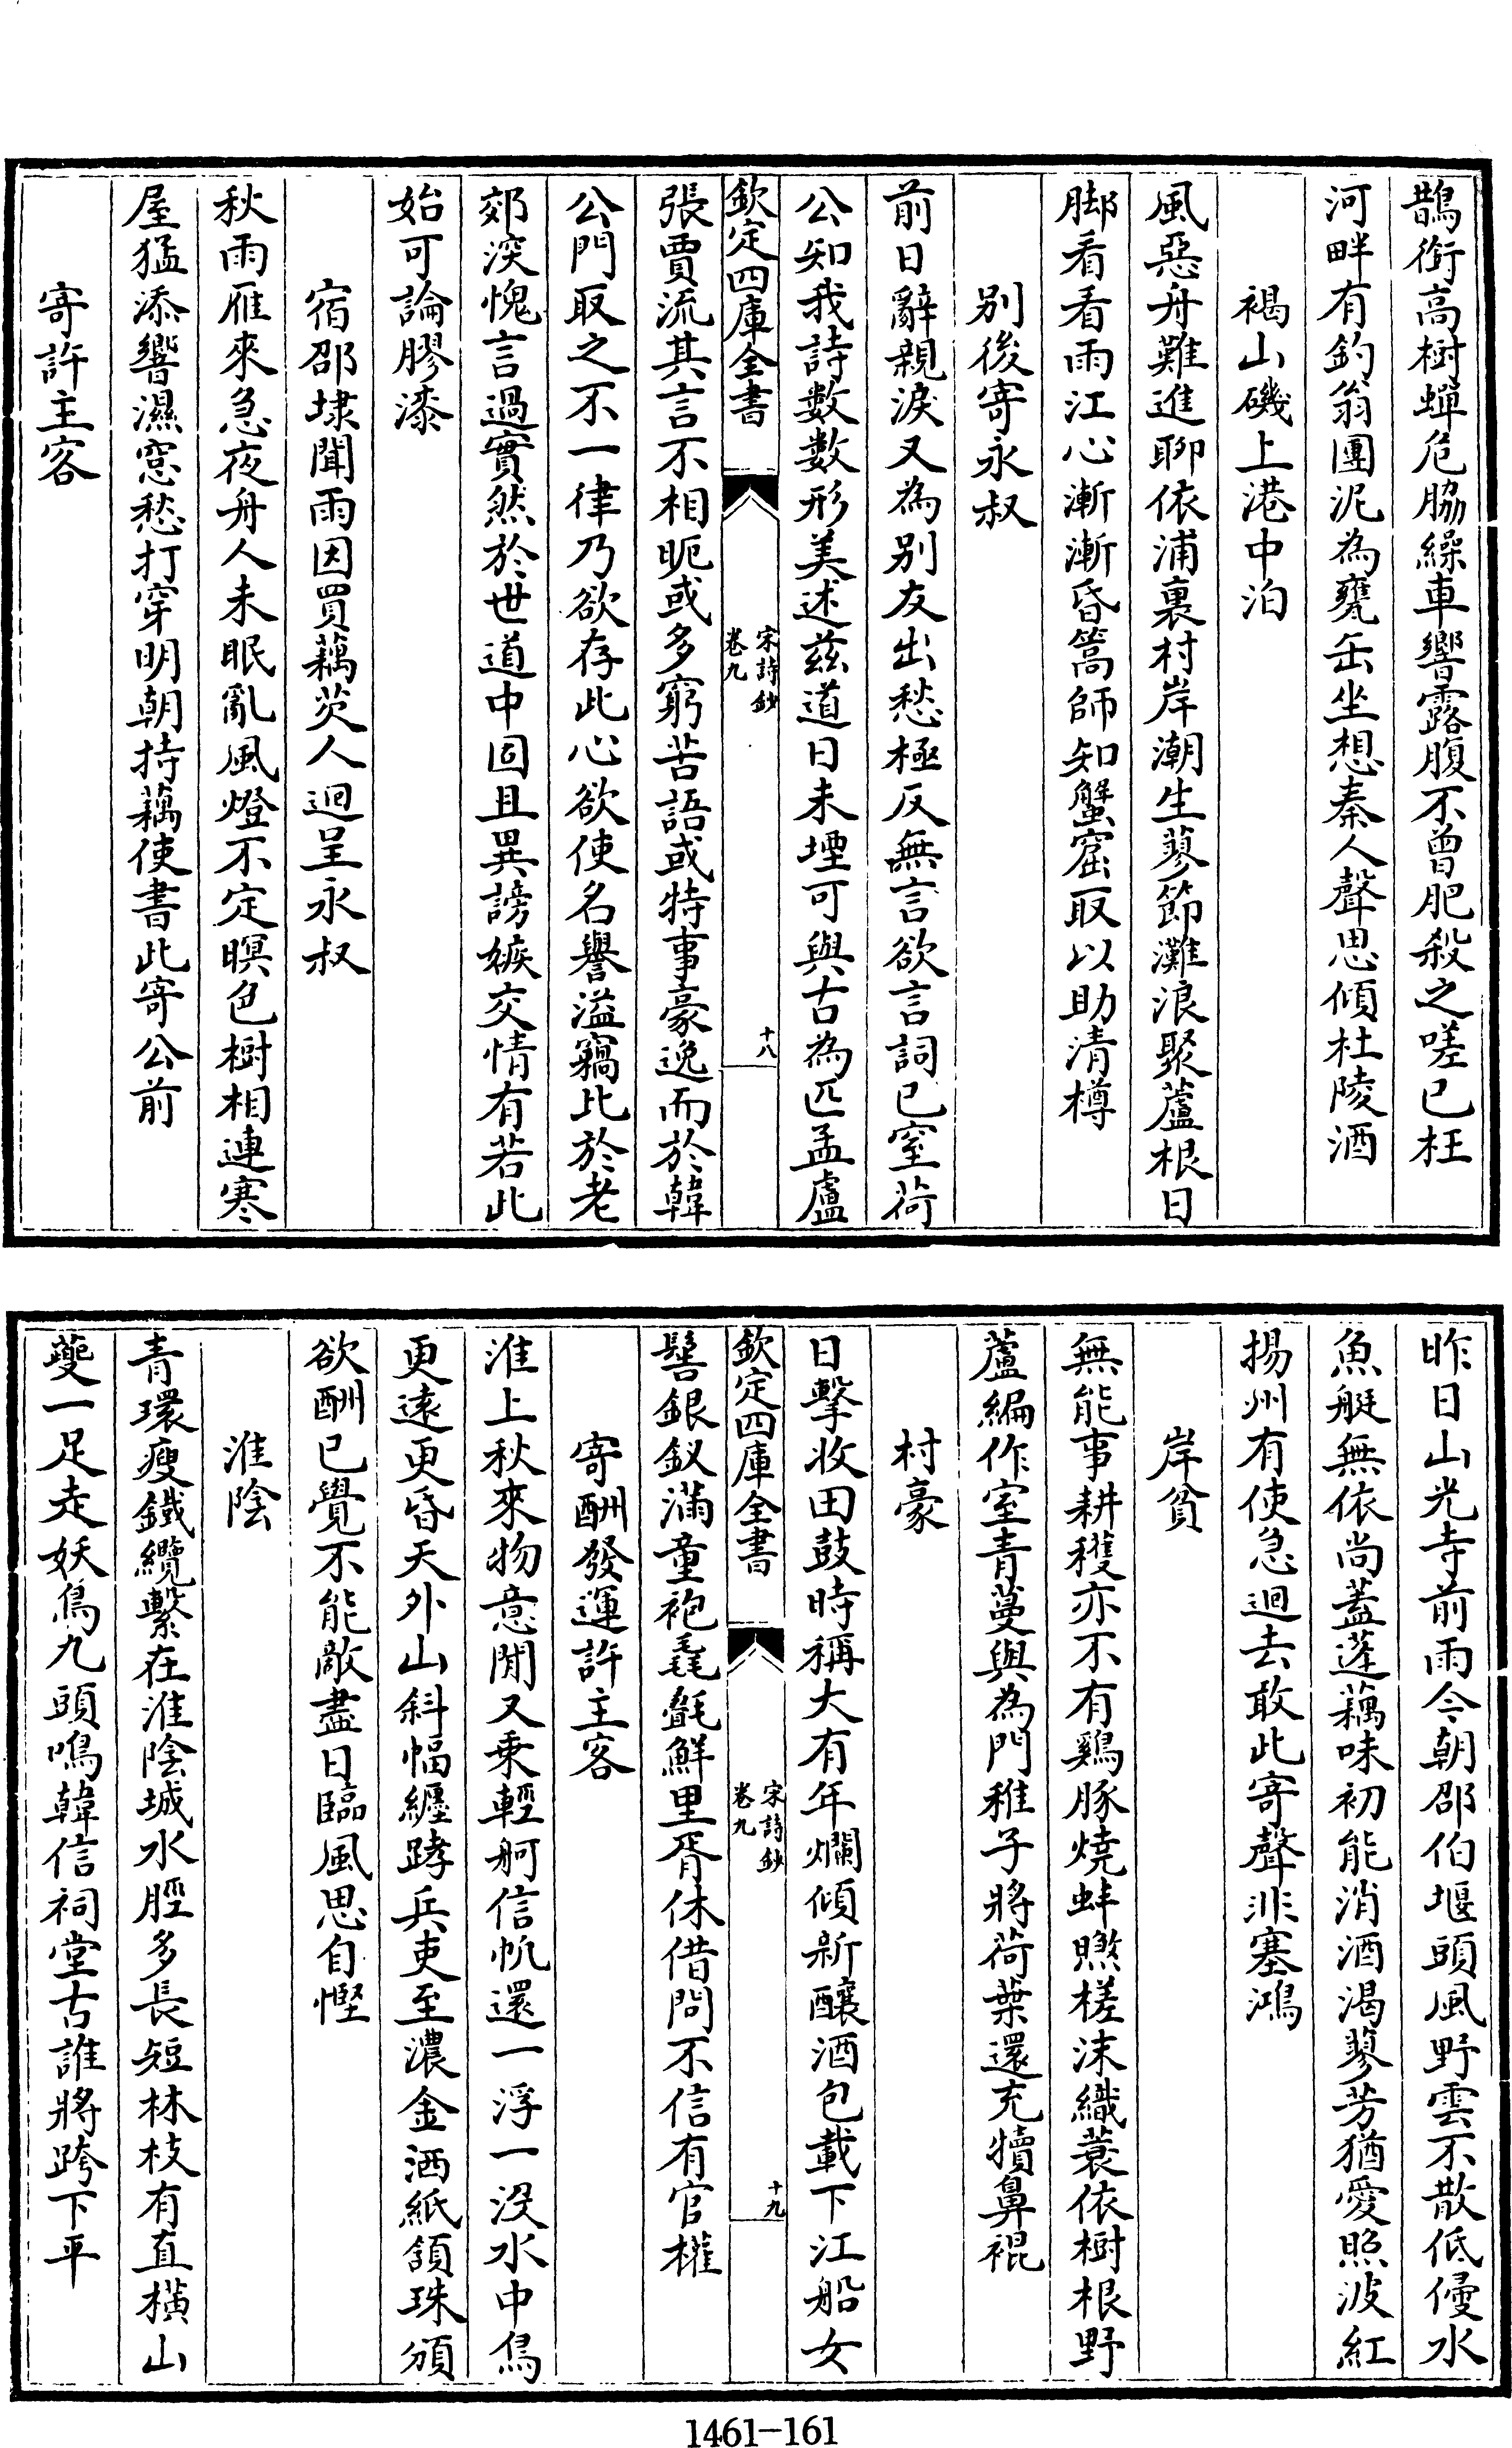 鵲銜高樹蟬危脇繰車響露腹不曾肥殺之嗟已枉
河畔有釣翁團泥為甕缶坐想秦人聲思傾杜陵酒
褐山磯上港中泊
風惡舟難進聊依浦裏村岸潮生蓼節灘浪聚蘆根日
脚看看雨江心漸漸昏篙師知蟹窟取以助清樽
別後寄永叔
前日辭親淚又為別友出愁極反無言欲言詞已窒荷
公知我詩數數形美述茲道日未堙可與古為匹孟盧
欽定四庫全書
宋詩鈔
卷九
十八
張賈流其言不相昵或多窮苦語或特事豪逸而於韓
公門取之不一律乃欲存此心欲使名譽溢竊比於老
郊深愧言過實然於世道中固且異謗嫉交情有若此
始可論膠漆
宿邵埭聞雨因買藕芡人迴呈永叔
秋雨雁來急夜舟人未眠亂風燈不定暝色樹相連寒
屋猛添響濕窓愁打穿明朝持藕使書此寄公前
寄許主客
昨日山光寺前雨今朝邵伯堰頭風野雲不散低侵水
魚艇無依尚蓋蓬藕味初能消酒渴蓼芳猶愛照波紅
揚州有使急迴去敢此寄聲非塞鴻
岸貧
無能事耕穫亦不有鷄豚燒蚌曬槎沫織蓑依樹根野
蘆編作室青蔓與為門稚子將荷葉還充犢鼻裩
村豪
日擊收田鼓時稱大有年爛傾新釀酒包載下江船女
欽定四庫全書
宋詩鈔
卷九
十九
髻銀釵滿童袍毳氎鮮里胥休借問不信有官權
寄酬發運許主客
淮上秋來物意閒又乗輕舸信帆還一浮一没水中鳥
更遠更昏天外山斜幅纏跨兵吏至濃金洒紙頷珠頒
欲酬已覺不能敵盡日臨風思自慳
淮陰
青環瘦鐵纜繫在淮陰城水脛多長短林枝有直橫山
夔一足走妖鳥九頭鳴韓信祠堂古誰將跨下平
1461-161